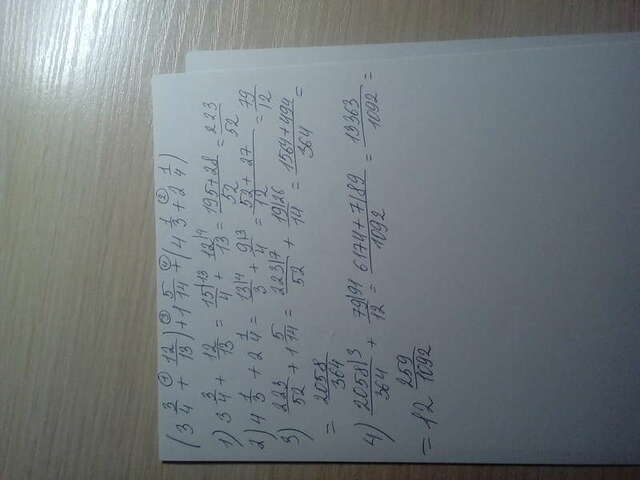 (3 3/4 +① 12/13) +③ 1 5/14 +④ (4 1/3 +② 2 1/4)
1) 3 3/4 + 12/13 = 15/4|13 + 12/13|4 = 195+28/52 = 223/52
2) 4 1/3 + 2 1/4 = 13/3|4 + 9/4|3 = 52+27/12 = 79/12
3) 223/52 + 1 5/14 = 223/52|7 + 19/14|26 = 1564+494/364 =
= 2058/364
4) 2058/364|3 + 79/12|91 = 6174+7189/1092 = 13363/1092 =
= 12 259/1092